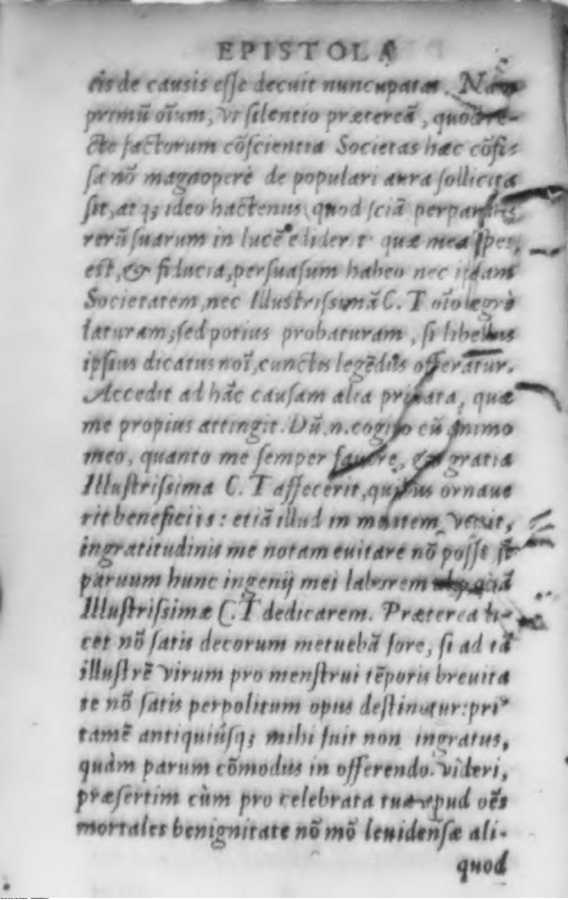 EPISTOLA
cis de causis esse decuit nuncupatas. Nam
primũ oĩum, vt silentio præterea, quod re-
cte factorum cõscientia Societas hæc cõfis-
sa nõ magnopere de populari aura sollicita
sit, atq; ideo hactenus quod sciã perpaucas
rerũ suarum in lucẽ ediderit quæ mea spes
est, & fiducia, persuasum habeo nec ipsam
Societatem, nec Illustrissimã C. T oĩo ægrè
laturam; sed potius probaturam, si libellus
ipsius dicatus noĩ, cunctis legẽdus offeratur.
Accedit ad hãc causam alia priuata, quæ
me propius attingit. Dũ.n. cogito cũ animo
meo, quanto me semper fauore, & gratia
Illustrissima C. T affecerit, quibus ornaue
rit beneficiis: etiã illud in mentem venit,
ingratitudinis me notam euitare nõ posse
paruum hunc ingenij mei laborem
Illustrissimæ C. T dedicarem. Præterea li-
cet nõ satis decorum metuebã fore, si ad tã
illustrẽ virum pro menstrui tẽporis breuita
te nõ satis perpolitum opus destinatur: pri
tamẽ antiquiúsq; mihi fuit non ingratus,
quàm parum cõmodus in offerendo videri,
præsertim cùm pro celebrata tua apud oẽs
mortales benignitate nõ mõ leuidensæ ali-
quod